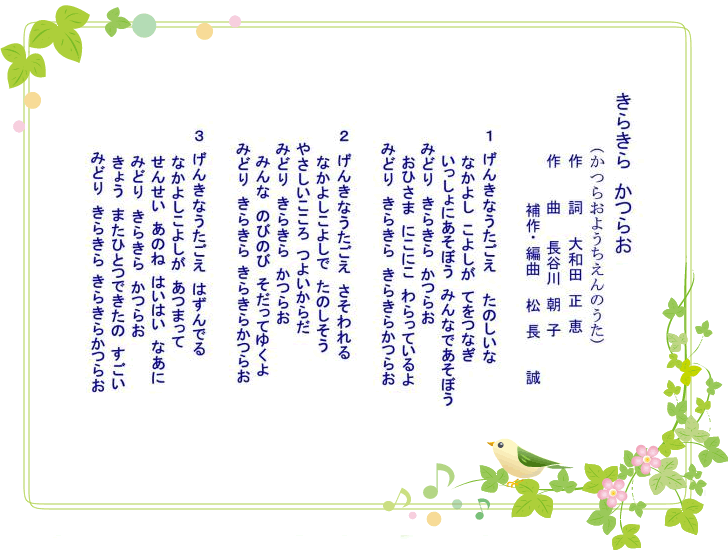 きらきら　かつらお
（かつらおようちえんのうた）
作　詞　大和田　正　恵
作　曲　長谷川　朝　子
補作・編曲　松　長　誠
1　げんきなうたごえ　たのしいな
なかよし　こよしが　てをつなぎ
いっしょにあそぼう　みんなであそぼう
みどり　きらきら　かつらお
おひさま　にこにこ　わらっているよ
みどり　きらきら　きらきらかつらお
2　げんきなうたごえ　さそわれる
なかよしこよしで　たのしそう
やさしいこころ　つよいからだ
みどり　きらきら　かつらお
みんな　のびのび　そだってゆくよ
みどり　きらきら　きらきらかつらお
3　げんきなうたごえ　はずんでる
なかよしこよしが　あつまって
せんせい　あのね　はいはい　なあに
みどり　きらきら　かつらお
きょう　またひとつできたの　すごい
みどり　きらきら　きらきらかつらお